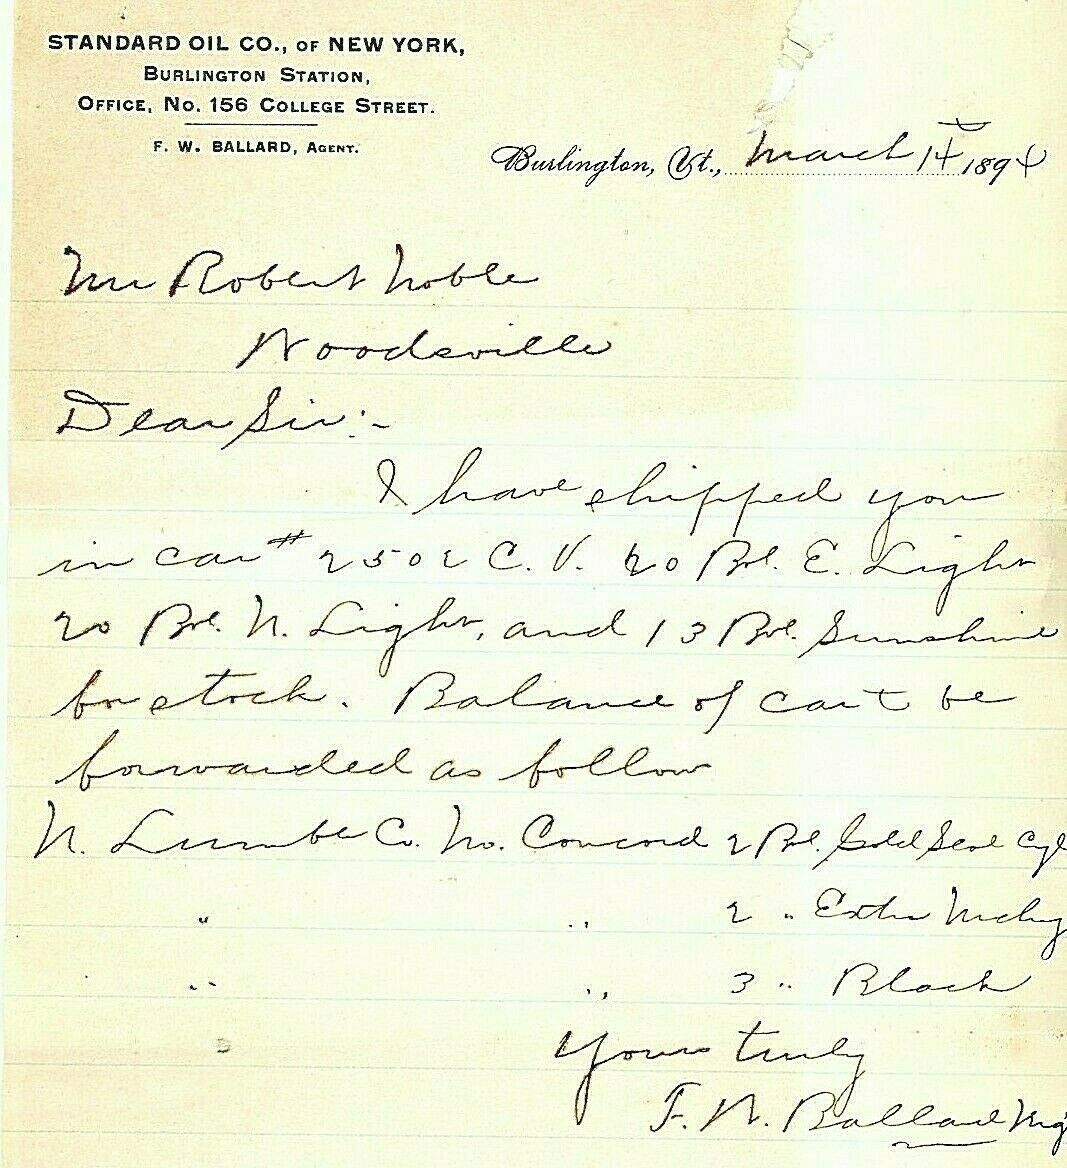 STANDARD OIL CO., OF NEW YORK,
BURLINGTON STATION,
OFFICE, No. 156 COLLEGE STREET.
F. W. BALLARD, AGENT.
Burlington, Vt., March 14 1894
Mr Robert Noble
Woodsville
Dear Sir:-
I have shipped you
in car # 2502 C. V. 20 Bbl. E. Light
20 Bbl. N. Light, and 13 Bbl. Sunshine
for stock. Balance of car to be
forwarded as follow
N. Lumber Co. No. Concord 2 Bbl. Gold Seal Cyl
" " 2 " Extra
" " 3 " Black
Yours truly
F. W. Ballard Mg